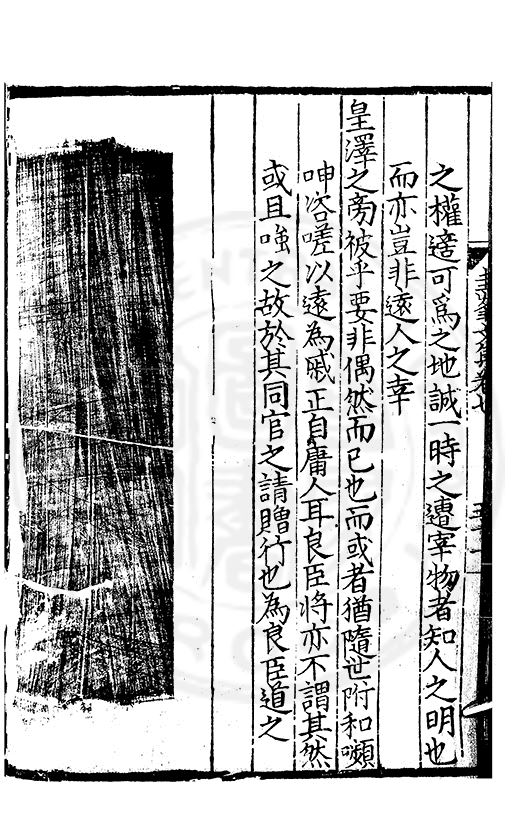 之權適可爲之地誠一時之遭宰物者知人之明也
而亦豈非遠人之幸
皇澤之旁被乎要非偶然而已也而或者猶隨世附和嚬
呻咨嗟以遠為戚正自庸人耳良臣將亦不謂其然
或且嗤之故於其同官之請贈行也為良臣道之